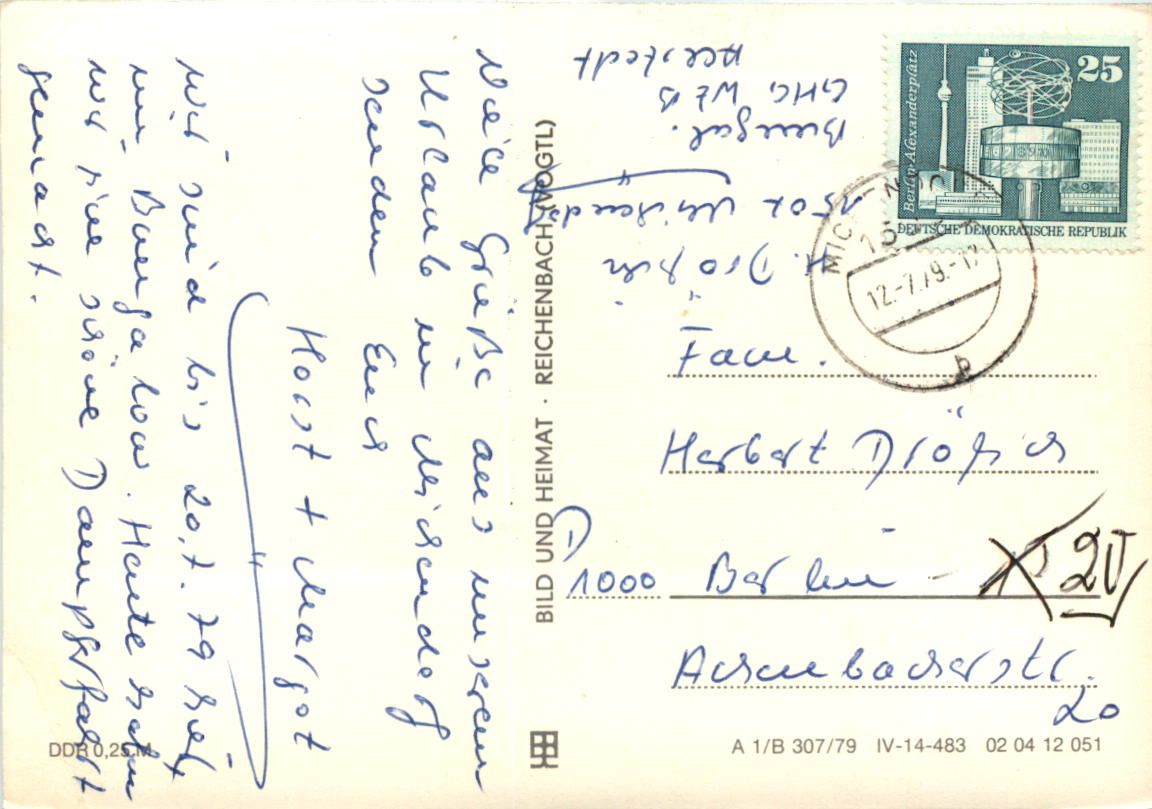 Viele Grüße aus unserem
Urlaub in Michendorf
senden Euch
Horst + Margot
Wir sind bis 20.7.79 hier
im Bungalow. Heute haben
wir eine schöne Dampferfahrt
gemacht.
BILD UND HEIMAT · REICHENBACH (VOGTL)
H. Dröfich
1502 Michendorf
Bungal.
GHG WtB
Berlin-Alexanderplatz
25
DEUTSCHE DEMOKRATISCHE REPUBLIK
MICHENDORF
12.-7.79.-17
b
Fam.
Herbert Dröfich
D
1000 Berlin 20
Achenbacherstr.
20
DDR 0,25 M
A 1/B 307/79 IV-14-483 02 04 12 051